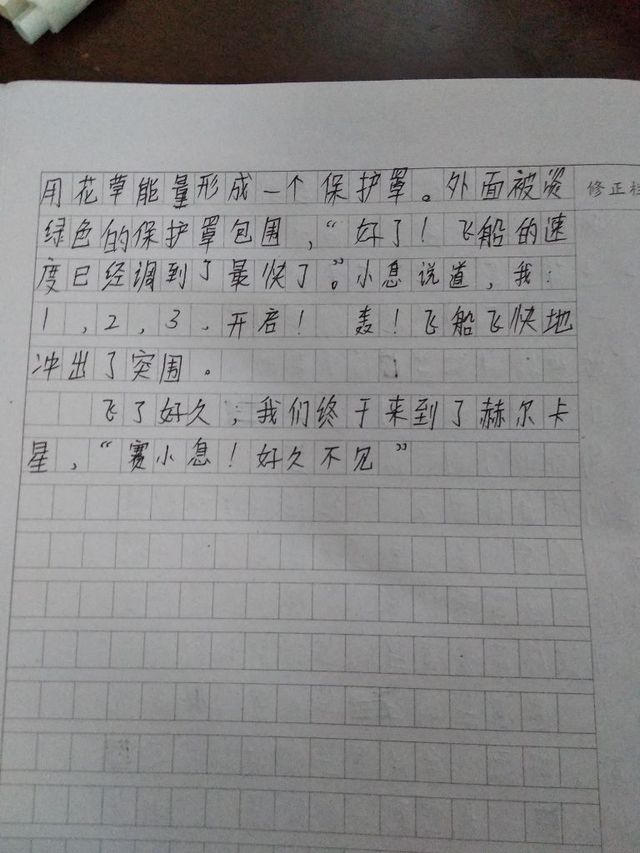 用花草能量形成一个保护罩。外面被炭
修正栏
绿色的保护罩包围，“好了！飞船的速
度已经调到了最快了”。小息说道，我：
1，2，3、开启！轰！飞船飞快地
冲出了突围。
飞了好久，我们终于来到了赫尔卡
星，“赛小息！好久不见”